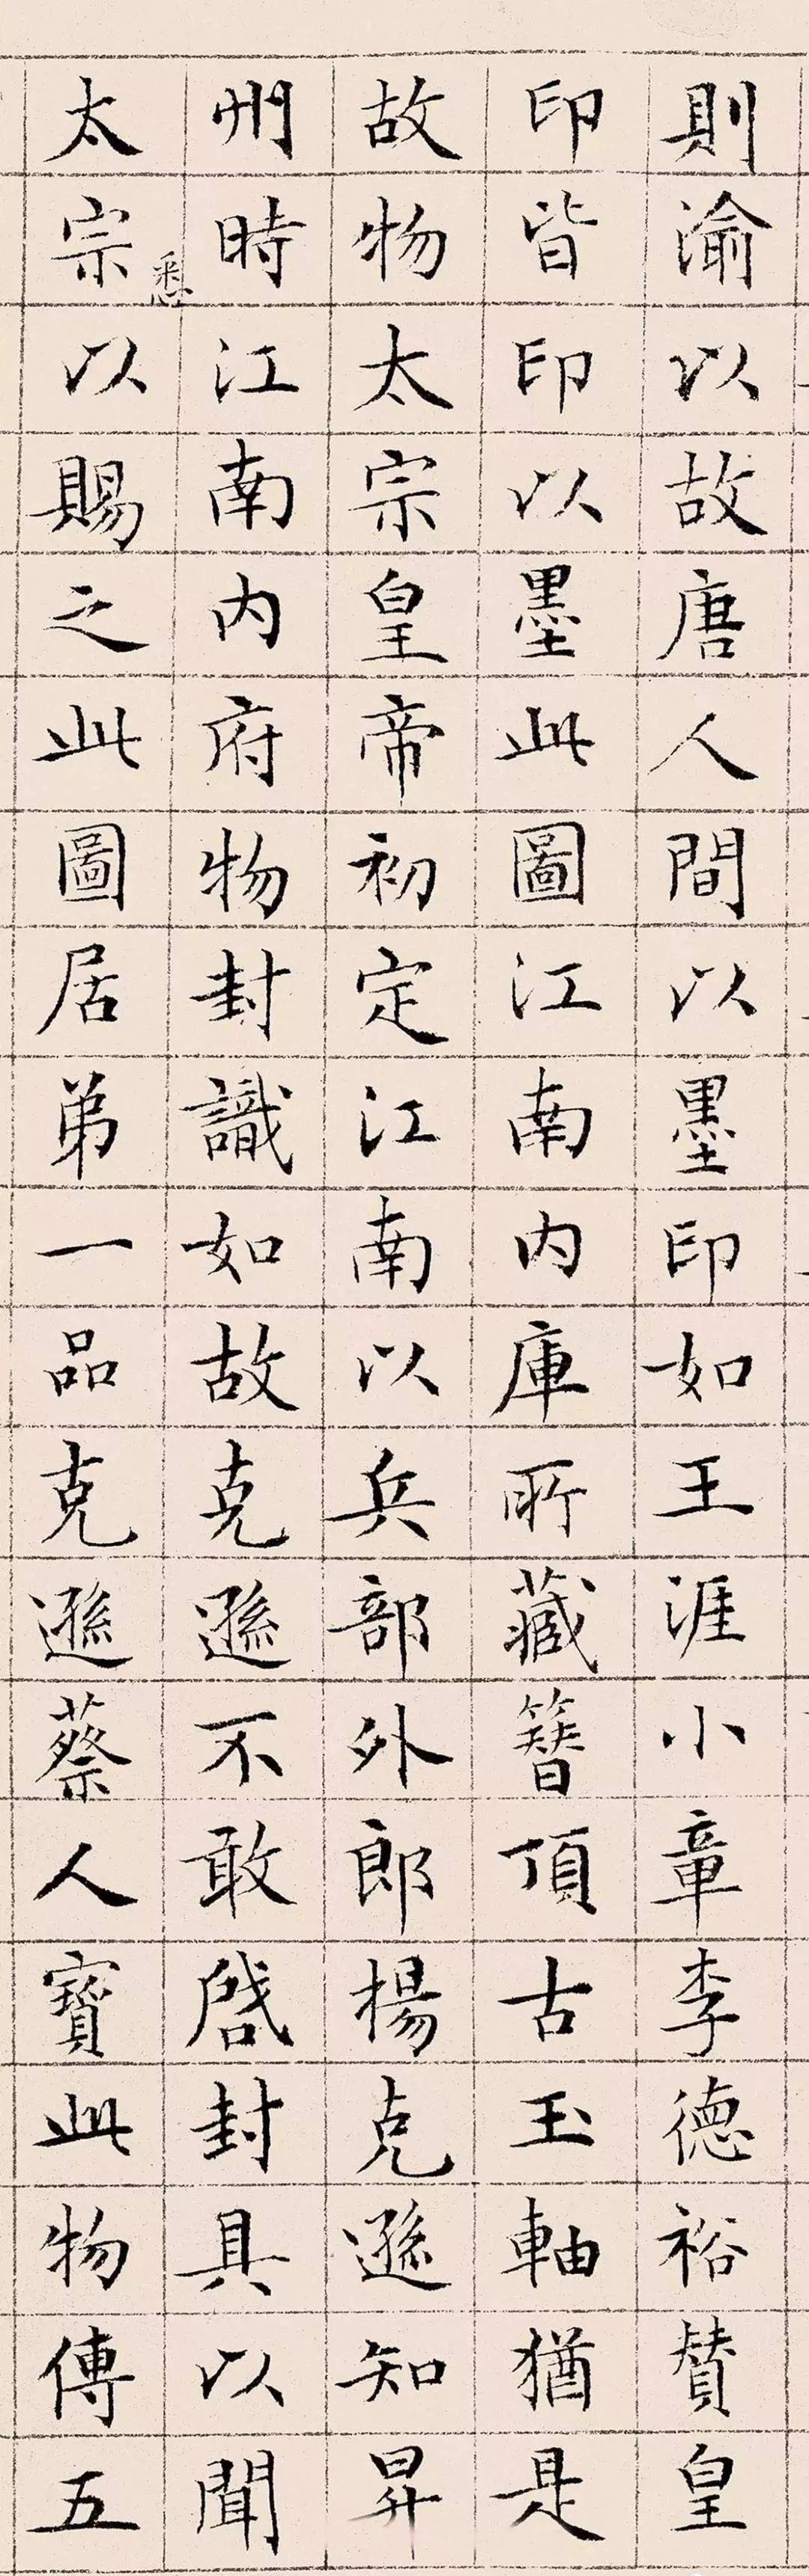 則渝以故唐人間以墨印如王涯小章李德裕賛皇
印皆印以墨此圖江南内庫所藏簪頂古玉軸猶是
故物太宗皇帝初定江南以兵部外郎楊克遜知昇
州時江南内府物封識如故克遜不敢啓封具以聞
悉
太宗以賜之此圖居弟一品克遜蔡人寳此物傳五